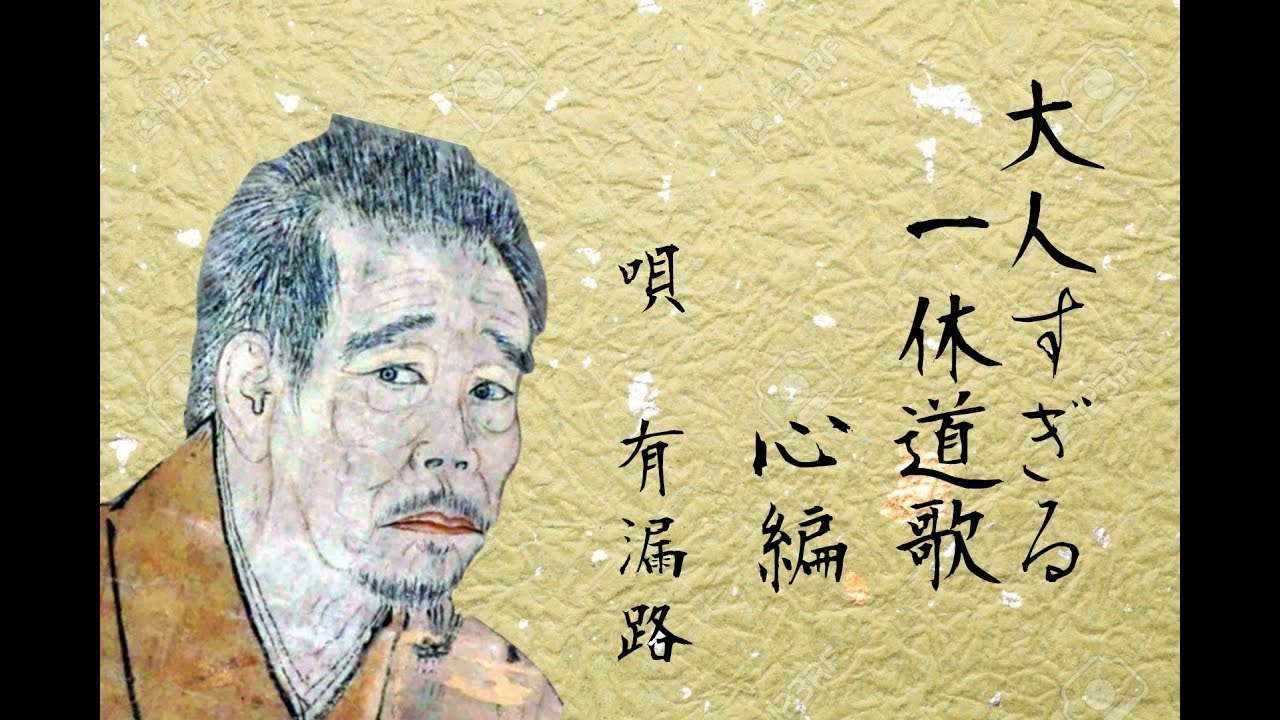 大人すぎる
一休道歌
心編
唄 有漏路
123RF
123RF
123RF